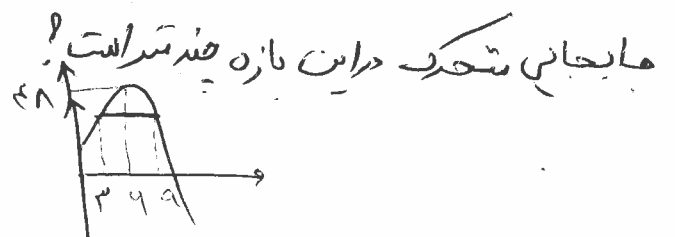 جابجایی متحرک دراین بازه چند متر است؟
۴۸
۳ ۶ ۹